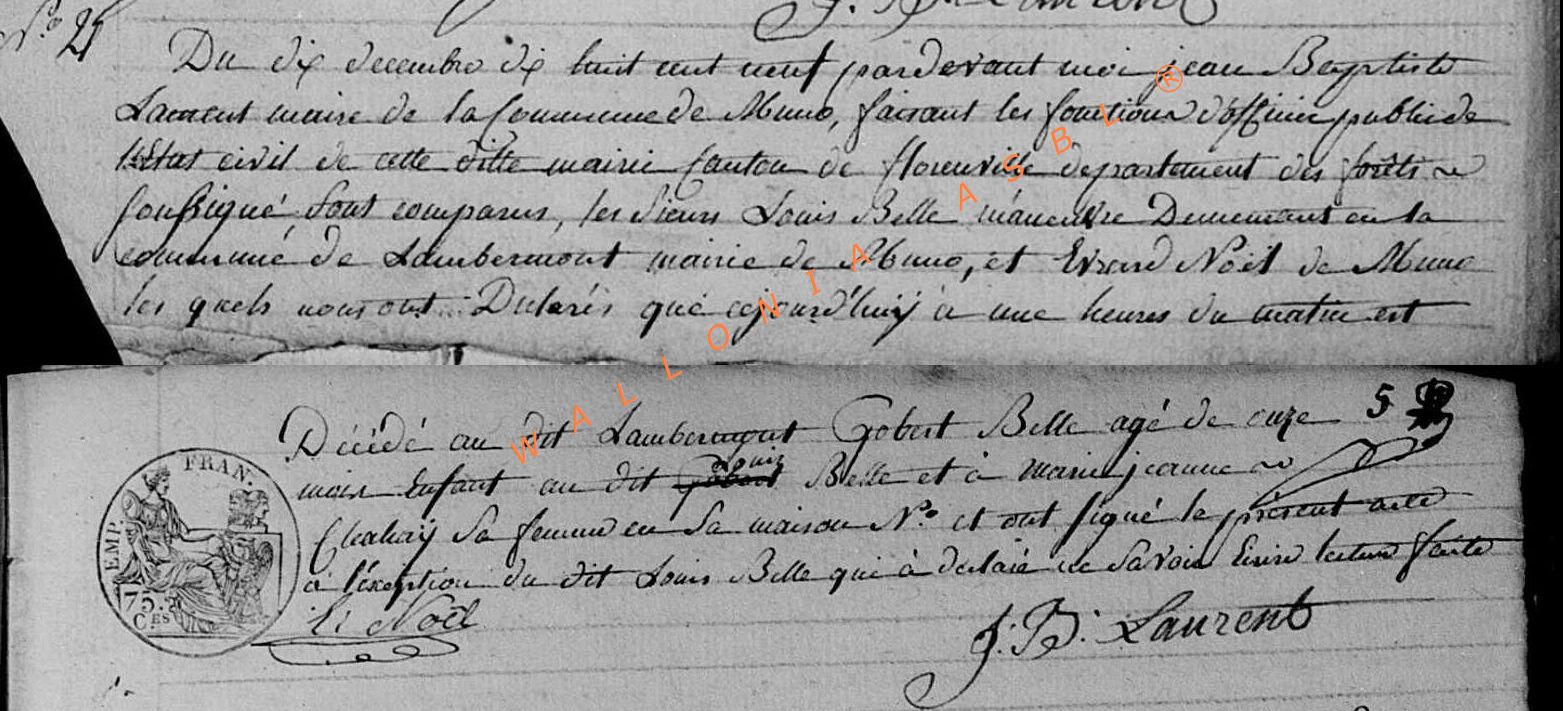 J. B. Laurent
N.º 21
Du dix decembre dix huit cent neuf pardevant moi jean Baptiste
Laurent maire de la Commune de Muno, faisant les fonctions d'officier public de
l'Etat civil de cette ditte mairie Canton de florenville departement des forêts
soussigné sont comparus, les Sieurs Louis Belle manœuvre Demeurant en la
commune de Lambermont mairie de Muno, et Evrard Noël de Muno
les quels nous ont Déclarés que cejourd'huÿ à une heures du matin est
WALLONIA ASBL ®
5
Décédé au dit Lambermont Gobert Belle agé de onze
mois Enfant au dit Louis Belle et à marie jeanne
sa femme en sa maison N.º et ont signé le présent acte
à l'exeption du dit Louis Belle qui à déclaré ne savoir Ecrire lecture faite
FRAN.
EMP.
75.
CES
E: Noël
J: B: Laurent